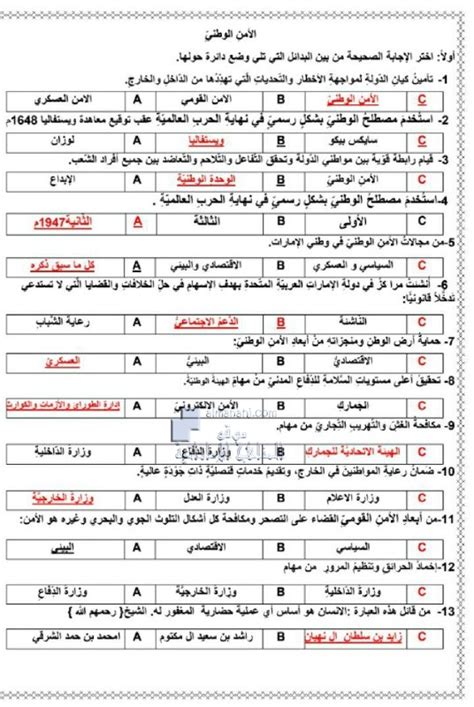 الأمن الوطنيّ
أولاً: اختر الإجابة الصحيحة من بين البدائل التي تلي وضع دائرة حولها.
1- تأمينُ كيانِ الدّولةِ لمواجهةِ الأخطارِ والتّحدياتِ الّتي تهدِّدُها من الدّاخلِ والخارجِ.
C الأمن الوطنيّ B الأمن القومي A الامن العسكري
2- استُخدمَ مصطلحُ الوطنيّ بشكلٍ رسميّ في نهايةِ الحربِ العالميّةِ عقب توقيع معاهدة ويستفاليا 1648م
C سايكس بيكو B ويستفاليا A لوزان
3- قيام رابطة قويّة بين مواطني الدّولة وتحقق التّفاعل والتّلاحم والتّعاضد بين جميع أفراد الشّعب.
C الأمن الوطنيّ B الوحدة الوطنيّة A الإبداع
4-استُخدمَ مصطلحُ الوطنيّ بشكلٍ رسميّ في نهايةِ الحربِ العالميّةِ .
C الأولى B الثالثة A الثانية1947م
5-من مجالاتُ الأمنِ الوطنيّ في وطني الإمارات.
C السياسي و العسكري B الاقتصادي والبيئي A كل ما سبق ذكره
6- أُنشئتْ مراكزُ في دولةِ الإماراتِ العربيّةِ المتّحدة بهدفِ الإسهامِ في حلّ الخلافاتِ والقضايا الّتي لا تستدعي
تدخّلاً قانونيًّا:
C الناشئة B الدّعمُ الاجتماعيُّ A رعاية الشّباب
7- حمايةُ أرضِ الوطنِ ومنجزاتِهِ منْ أبعادِ الأمنِ الوطنيّ:
C الاقتصاديُّ B البيئيُّ A العسكريُّ
8- تحقيقُ أعلى مستوياتِ السّلامةِ للدّفاعِ المدنيّ منْ مهامّ الهيئة الوطنيّة.
C الجمارك B الأمن الإلكترونيّ A ادارة الطوراي والأزمات والكوارث
almanahj.com
موقع
المناهج الإماراتية
9- مكافحةُ الغشّ والتّهريبِ التّجاريّ من مهام.
C الهيئة الاتحاديّة للجمارك B وزارة الدّفاع A وزارة الداخلية
10- ضمانُ رعايةِ المواطنينَ في الخارجِ، وتقديمُ خدماتٍ قنصليّةٍ ذات جودَةٍ عاليةٍ.
C وزارة الاعلام B وزارة العدل A وزارة الخارجيّة
11-من أبعادِ الأمنِ القوميّ القضاء على التصحر ومكافحة كل أشكال التلوث الجوي والبحري وغيره هو الأمن:
C السياسي B الاقتصادي A البيئي
12-إخمادُ الحرائق وتنظيمُ المرور من مهام
C وزارة الدّاخلية B وزارة الخارجيّة A وزارة الدّفاع
13- من قائل هذه العبارة :الانسان هو أساس أي عملية حضارية المغفور له. الشيخ{ رحمهم الله }
C زايد بن سلطان ال نهيان B راشد بن سعيد ال مكتوم A امحمد بن حمد الشرقي